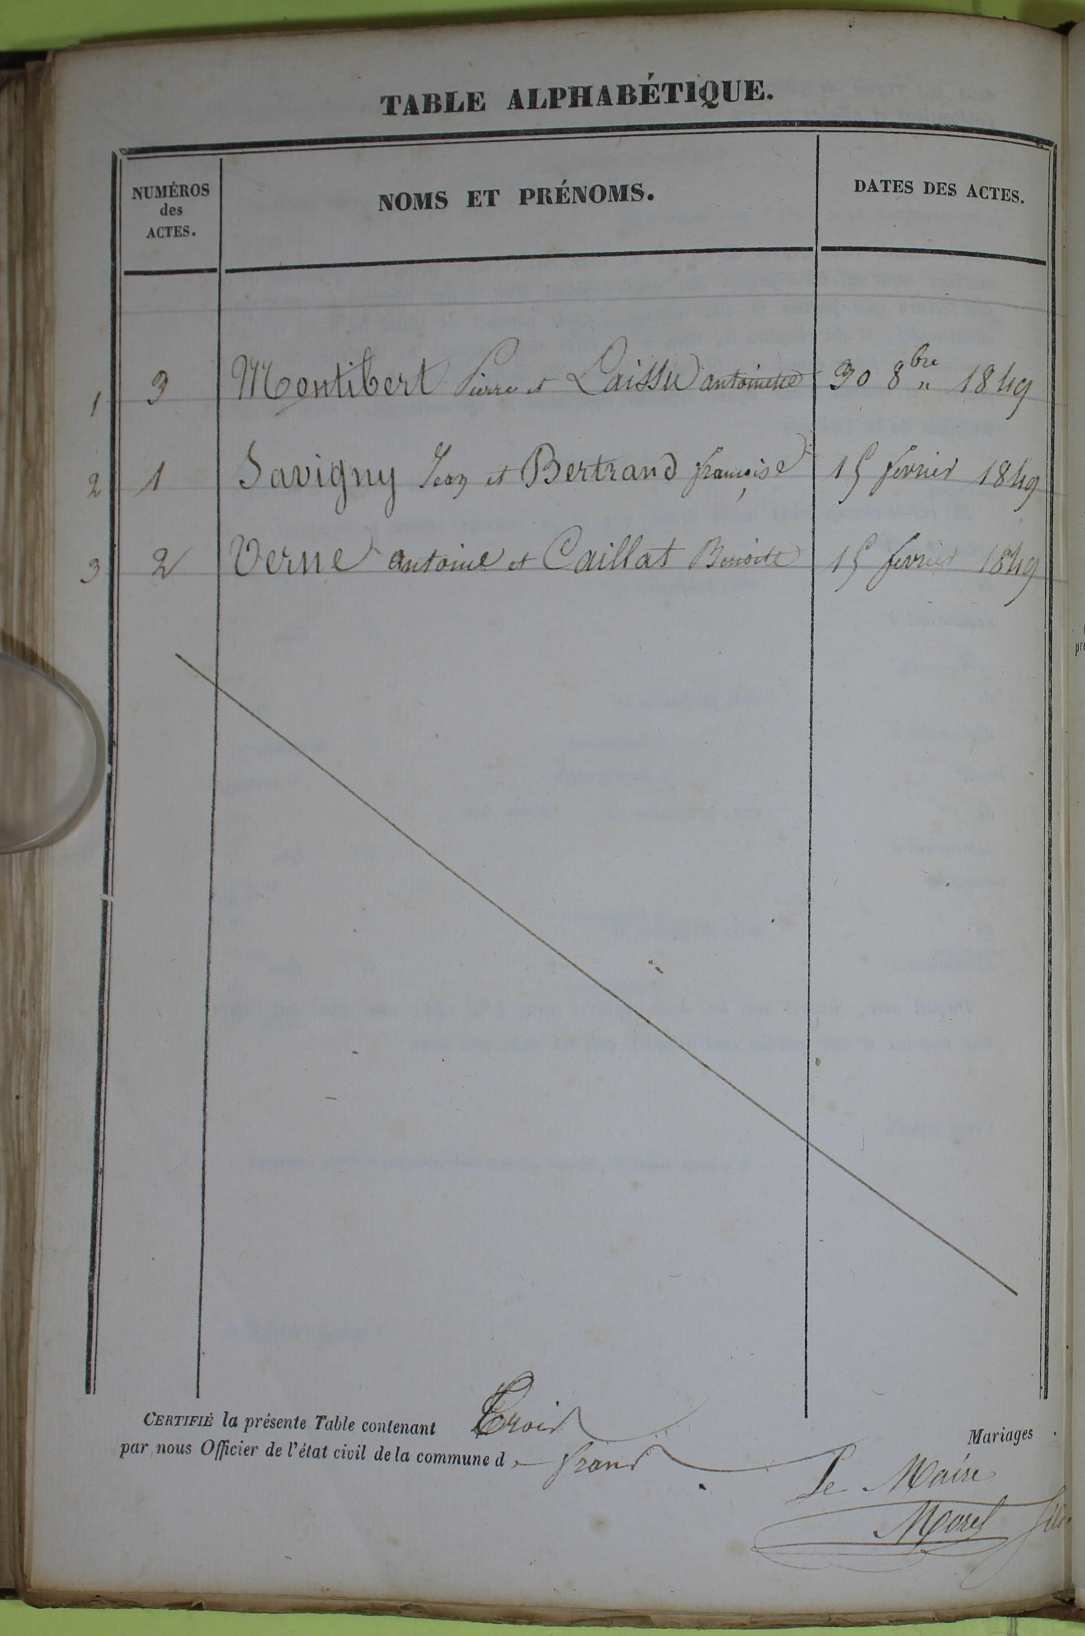 TABLE ALPHABÉTIQUE.
NUMÉROS
des
ACTES.
NOMS ET PRÉNOMS.
DATES DES ACTES.
1 3 Montibert Pierre et Laissu antoinette 30 8bre 1849
2 1 Savigny Jean et Bertrand françoise 15 fevrier 1849
3 2 Verne antoine et Caillat Benoite 15 fevrier 1849
CERTIFIÉ la présente Table contenant Trois Mariages
par nous Officier de l'état civil de la commune d e frans
Le Maire
Morel fils